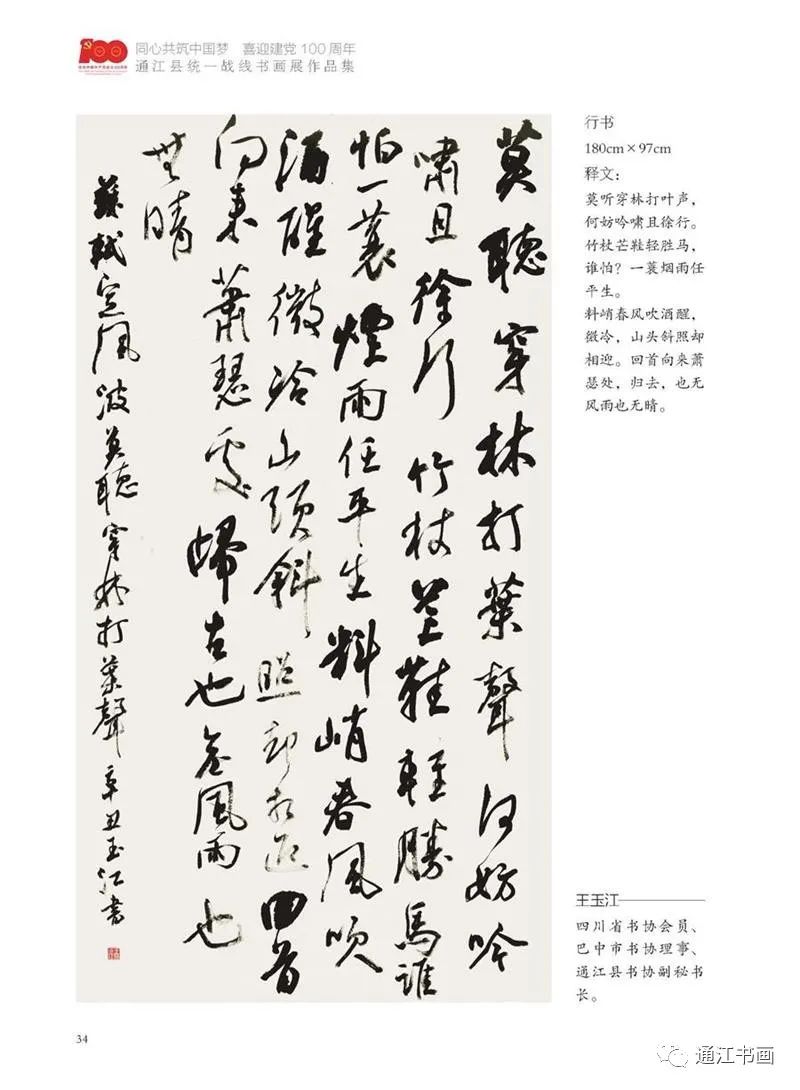 同心共筑中国梦 喜迎建党100周年
通江县统一战线书画展作品集
莫聽穿林打葉聲何妨吟
嘯且徐行竹杖芒鞋輕勝馬誰
怕一蓑煙雨任平生料峭春風吹
酒醒微冷山頭斜照却相迎回首
向來蕭瑟處歸去也無風雨也
無晴
蘇軾定風波莫聽穿林打葉聲辛丑玉江書
行书
180cm×97cm
释文：
莫听穿林打叶声，
何妨吟啸且徐行。
竹杖芒鞋轻胜马，
谁怕？一蓑烟雨任
平生。
料峭春风吹酒醒，
微冷，山头斜照却
相迎。回首向来萧
瑟处，归去，也无
风雨也无晴。
王玉江
四川省书协会员、
巴中市书协理事、
通江县书协副秘书
长。
34
通江书画